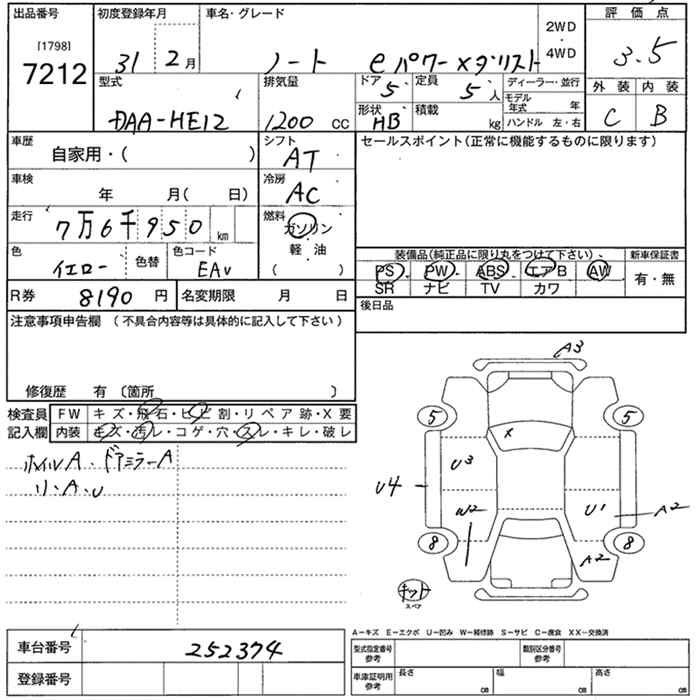 出品番号 初度登録年月 車名・グレード 2WD 評価点
[1798] 7212 31 2月 ノート eパワーメダリスト ・ 4WD 3.5
型式 排気量 ドア 5 定員 5人 ディーラー・並行 外装 内装
DAA-HE12 1200 CC 形状 HB 積載 kg モデル年式 年 ハンドル 左・右 C B
車歴 自家用・( ) シフト AT セールスポイント(正常に機能するものに限ります)
車検 年 月( 日) 冷房 AC
走行 7万6千950 km 燃料 ガソリン
色 イエロー 色替 色コード EAV 軽・油 ( )
装備品(純正品に限り丸をつけて下さい) 新車保証書
PS PW ABS エアB AW 有・無
SR ナビ TV カワ
R券 8190円 名変期限 月 日 後日品
注意事項申告欄 (不具合内容等は具体的に記入して下さい)
修復歴 有 〔箇所 〕
検査員 FW キズ・飛石・ヒビ割・リペア跡・X要
記入欄 内装 キズ・汚レ・コゲ・穴・スレ・キレ・破レ
ホイルA・ドアミラーA
リ・A・U
A3
5 5
X
U3
U4
W2 U1 A2
8 8
A2
キット
スペア
A−キズ E−エクボ U−凹み W−補修跡 S−サビ C−腐食 XX−交換済
車台番号 252374 型式指定番号 参考 類別区分番号 参考
登録番号 車庫証明用 参考 長さ cm 幅 cm 高さ cm